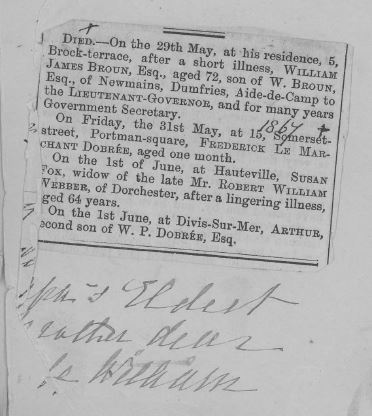 DIED.—On the 29th May, at his residence, 5,
Brock-terrace, after a short illness, WILLIAM
JAMES BROUN, Esq., aged 72, son of W. BROUN,
Esq., of Newmains, Dumfries, Aide-de-Camp to
the LIEUTENANT-GOVERNOR, and for many years
Government Secretary.
1867
On Friday, the 31st May, at 15, Somerset-
street, Portman-square, FREDERICK LE MAR-
CHANT DOBRÉE, aged one month.
On the 1st of June, at Hauteville, SUSAN
FOX, widow of the late Mr. ROBERT WILLIAM
WEBBER, of Dorchester, after a lingering illness,
aged 64 years.
On the 1st June, at Divis-Sur-Mer, ARTHUR,
second son of W. P. DOBRÉE, Esq.
pa's Eldest
rother dear
le William